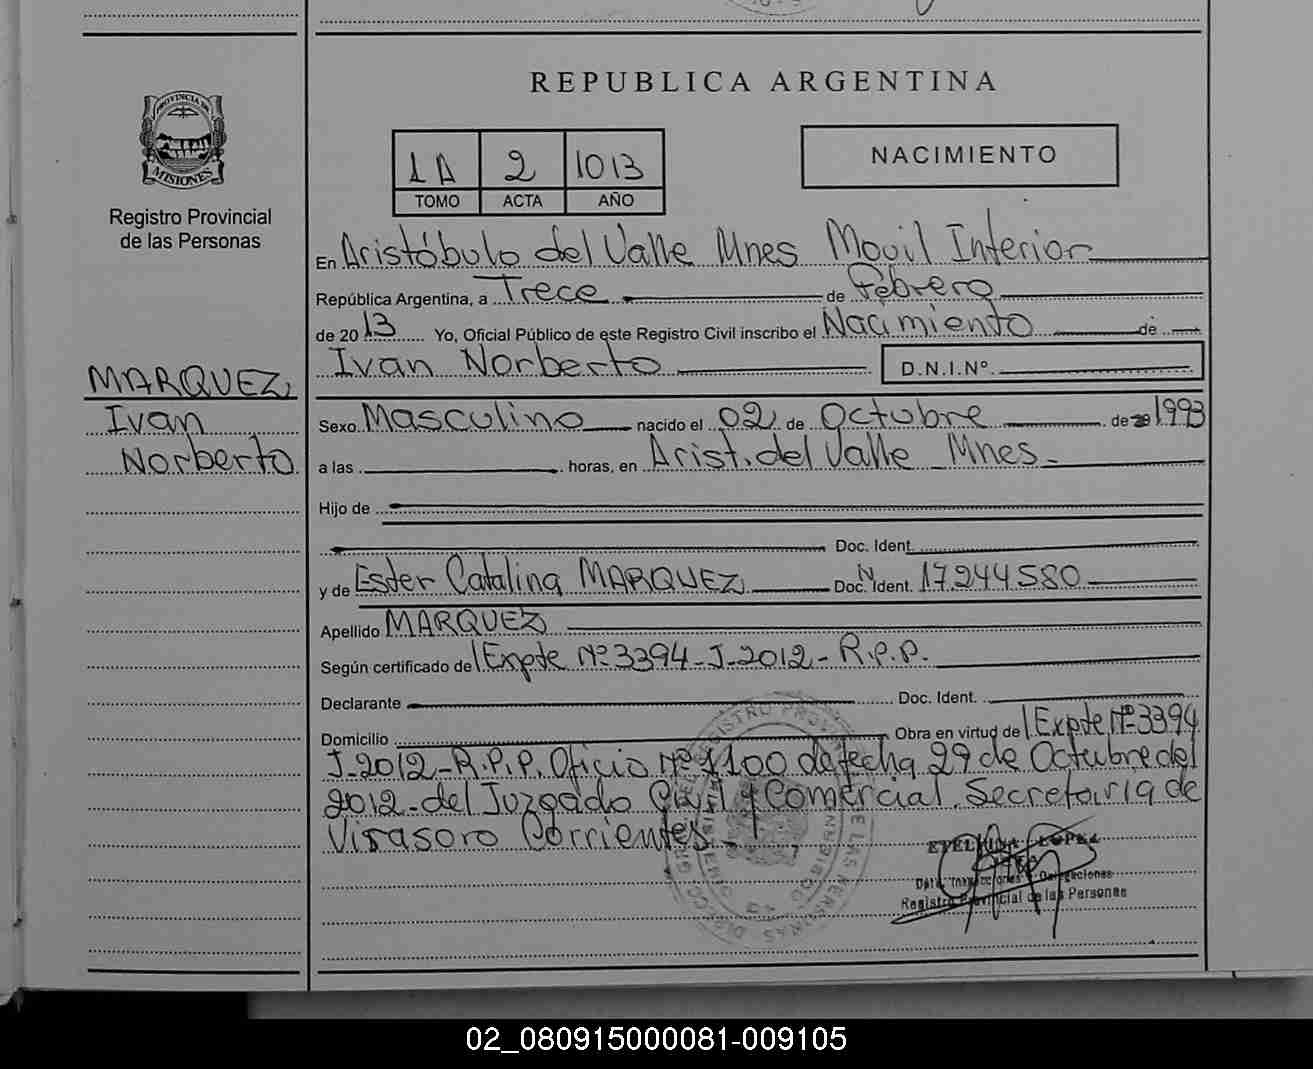 REPUBLICA ARGENTINA
PROVINCIA DE
MISIONES
Registro Provincial
de las Personas
1A 2 1013
TOMO ACTA AÑO
NACIMIENTO
En Aristóbulo del Valle Mnes Movil Interior
República Argentina, a Trece de Febrero
de 2013 Yo, Oficial Público de este Registro Civil inscribo el Nacimiento de
Ivan Norberto D.N.I.Nº
MARQUEZ,
Ivan
Norberto
Sexo Masculino nacido el 02 de Octubre de 1993
a las horas, en Arist. del Valle - Mnes -
Hijo de
Doc. Ident.
y de Ester Catalina MARQUEZ Doc. N Ident. 17.244.580
Apellido MARQUEZ
Según certificado de Expte Nº 3394-J-2012- R.P.P.
Declarante Doc. Ident.
Domicilio Obra en virtud de Expte Nº 3394
J-2012-R.P.P. Oficio Nº 1100 de fecha 29 de Octubre del
2012- del Juzgado Civil y Comercial. Secretaria de
Virasoro Corrientes -
ETELVINA LOPEZ
Registro Provincial de las Personas
02_080915000081-009105